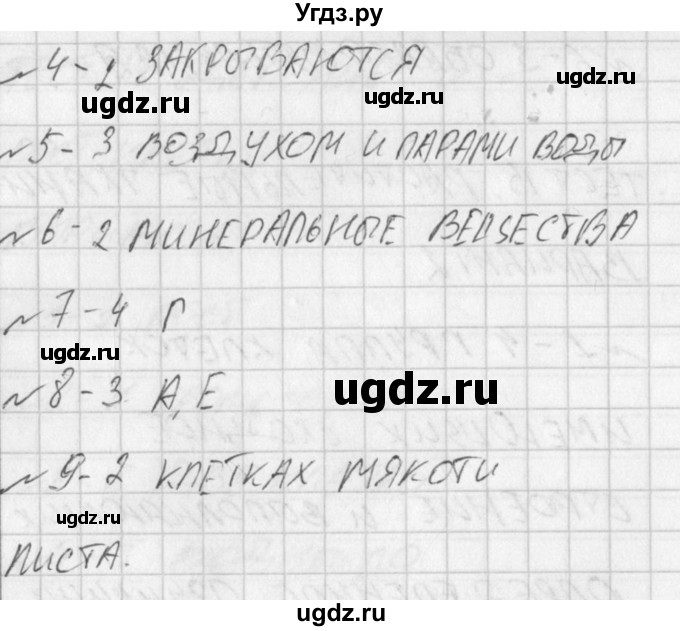 Угдз.ру
№4-2 ЗАКРЫВАЮТСЯ
ugdz.ru ugdz.ru ugdz.ru
№5-3 ВОЗДУХОМ И ПАРАМИ ВОДЫ
№6-2 МИНЕРАЛЬНЫЕ ВЕЩЕСТВА
№7-4 Г
ugdz.ru
№8-3 А, Е
ugdz.ru
№9-2 КЛЕТКАХ МЯКОТИ
ugdz.ru
ЛИСТА.
ugdz.ru